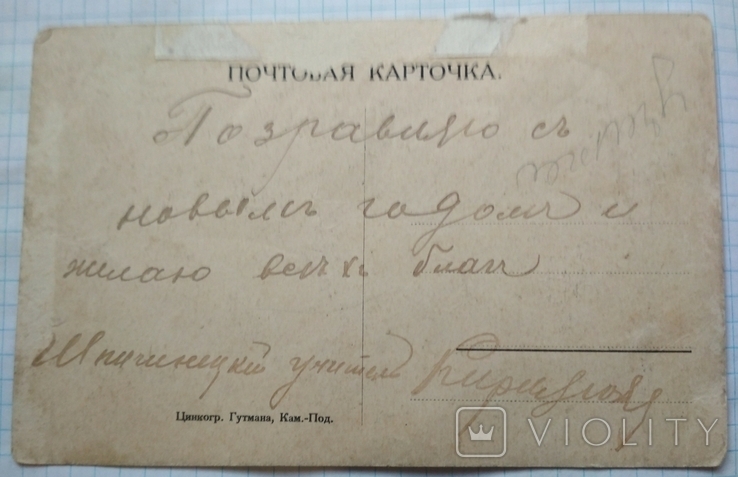 ПОЧТОВАЯ КАРТОЧКА.
Позравляю съ
новымъ годомъ и
желаю всѣхъ благъ
учитель
Цинкогр. Гутмана, Кам.-Под.
VIOLITY